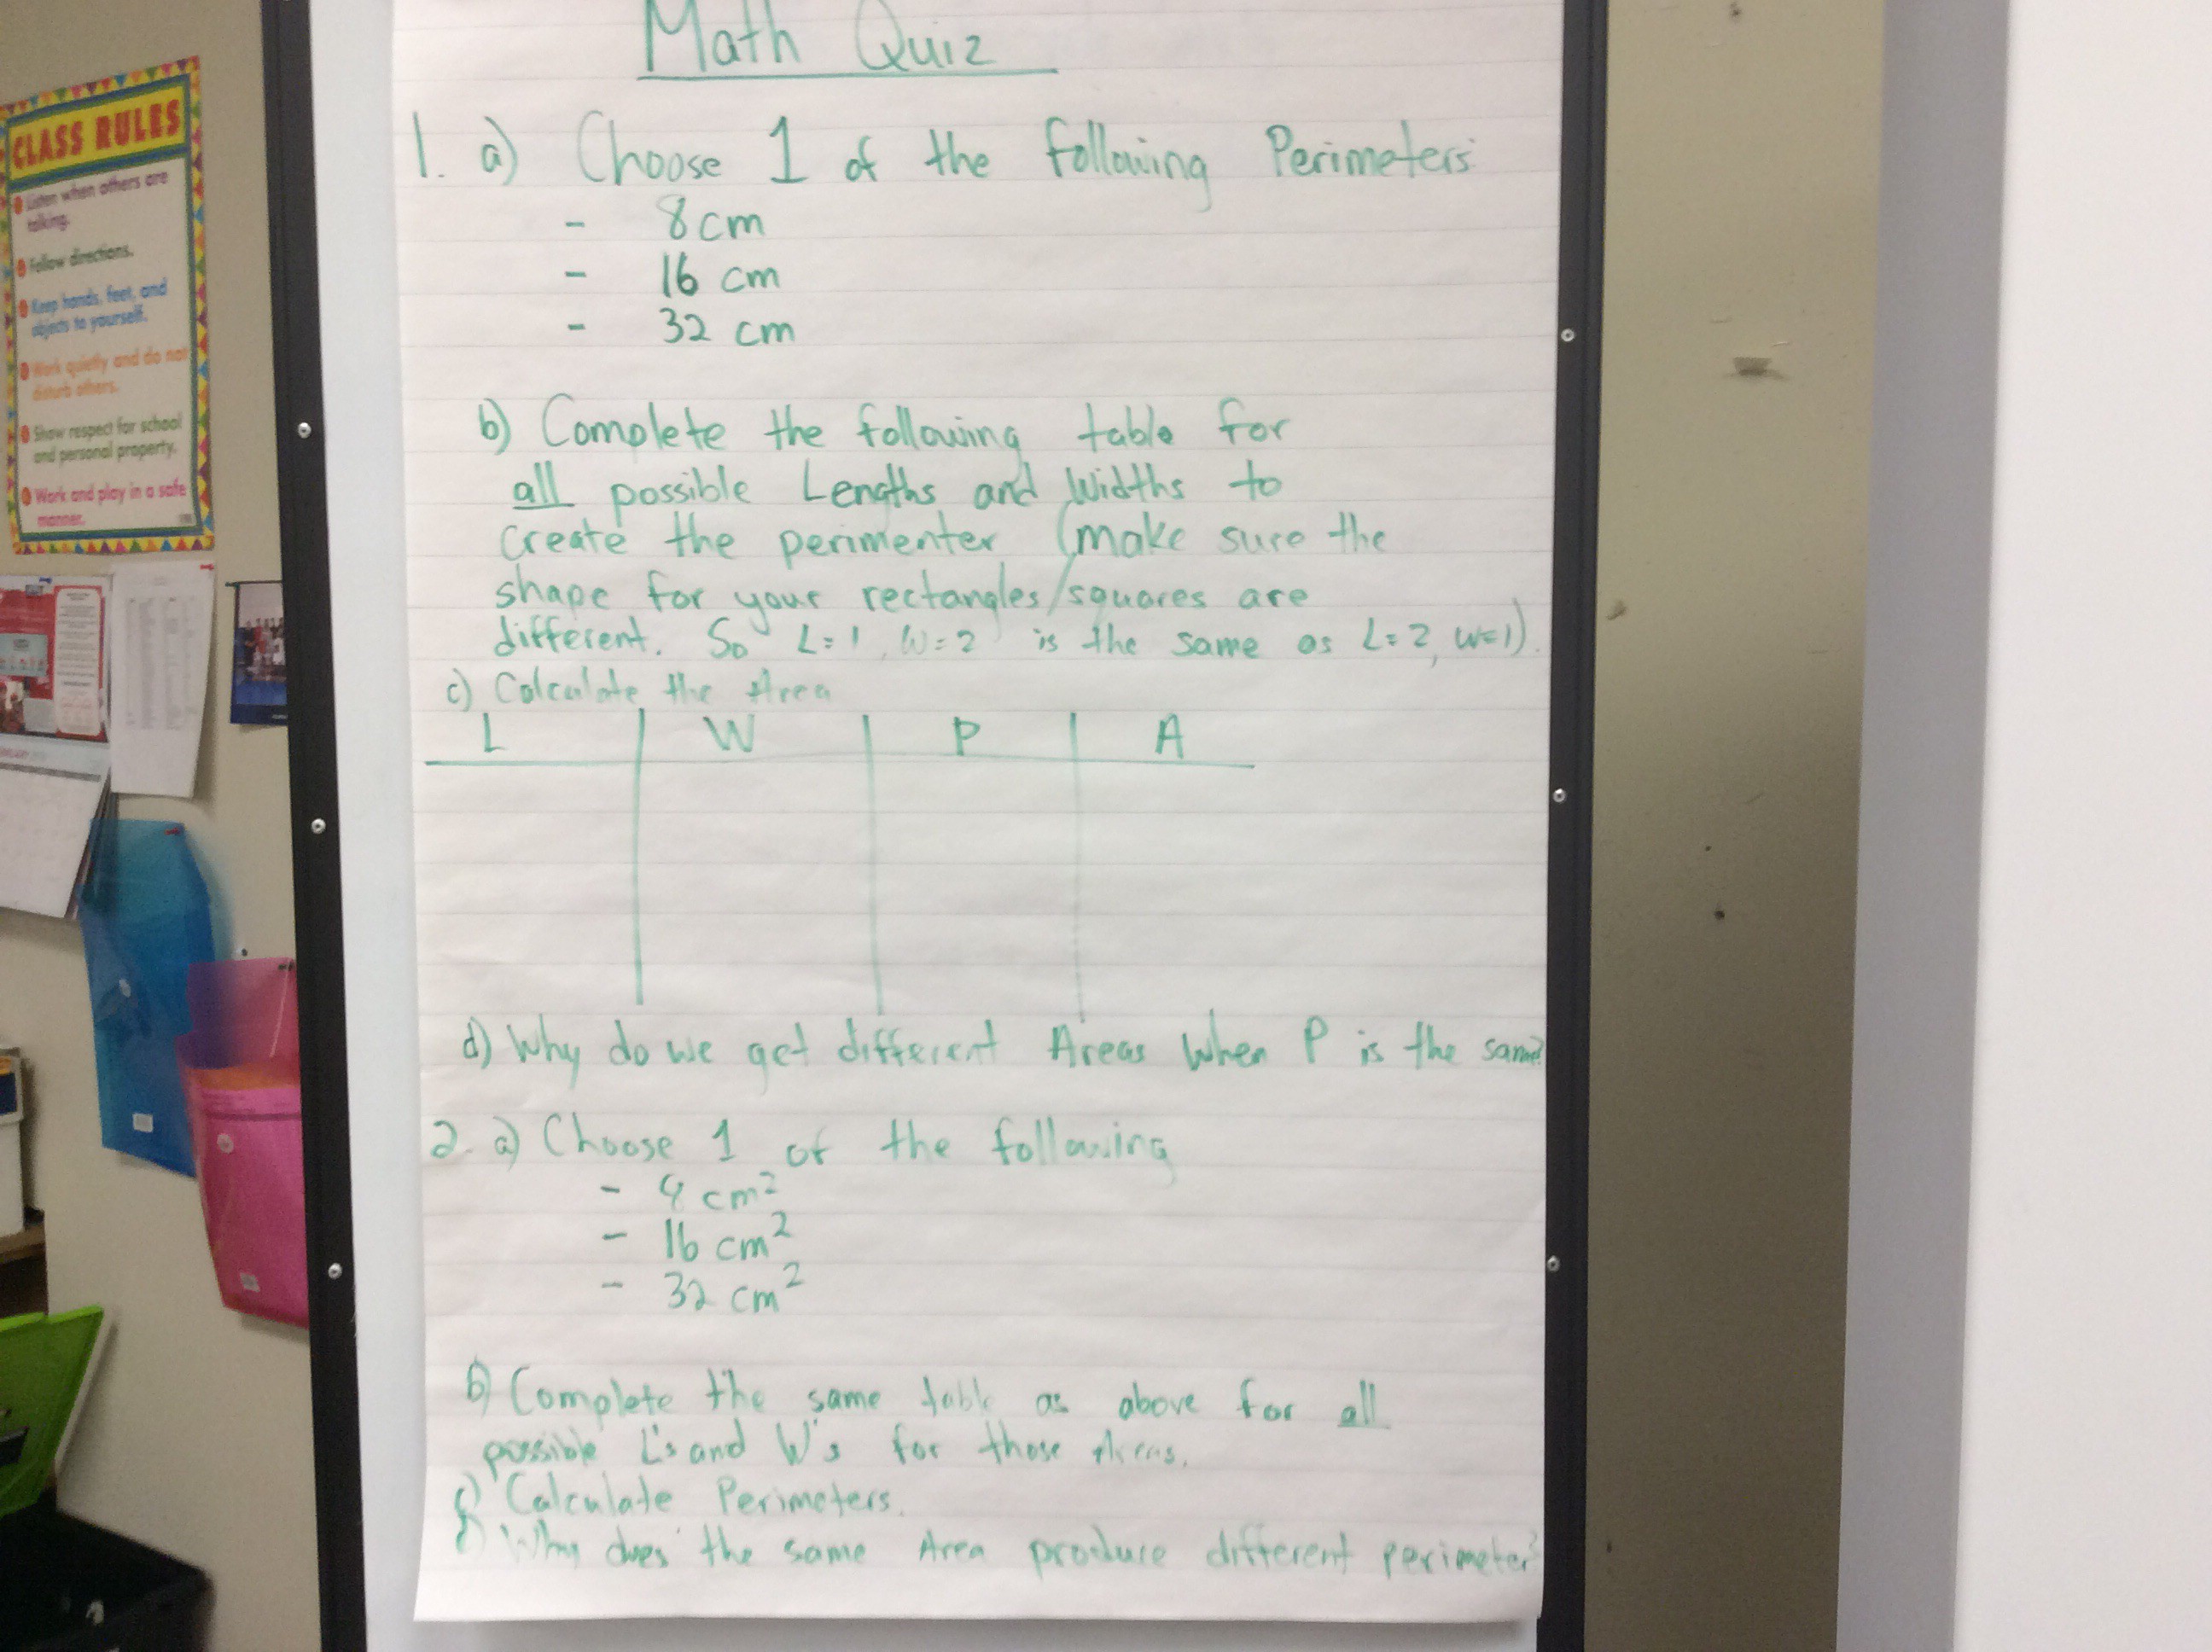 Math Quiz
1. a) Choose 1 of the following Perimeters
- 8cm
- 16 cm
- 32 cm
b) Complete the following table for
all possible Lengths and Widths to
create the perimenter (make sure the
shape for your rectangles/squares are
different. So L=1, W=2 is the same as L=2, W=1).
c) Calculate the Area
L W P A
d) Why do we get different Areas when P is the same?
2. a) Choose 1 of the following
- cm²
- 16 cm²
- 32 cm²
b) Complete the same table as above for all
possible L's and W's for those Areas.
c) Calculate Perimeters.
Why does the same Area produce different perimeter?
CLASS RULES
Listen when others are
talking.
Follow directions.
Keep hands, feet, and
objects to yourself.
Work quietly and do not
disturb others.
Show respect for school
and personal property.
Work and play in a safe
manner.